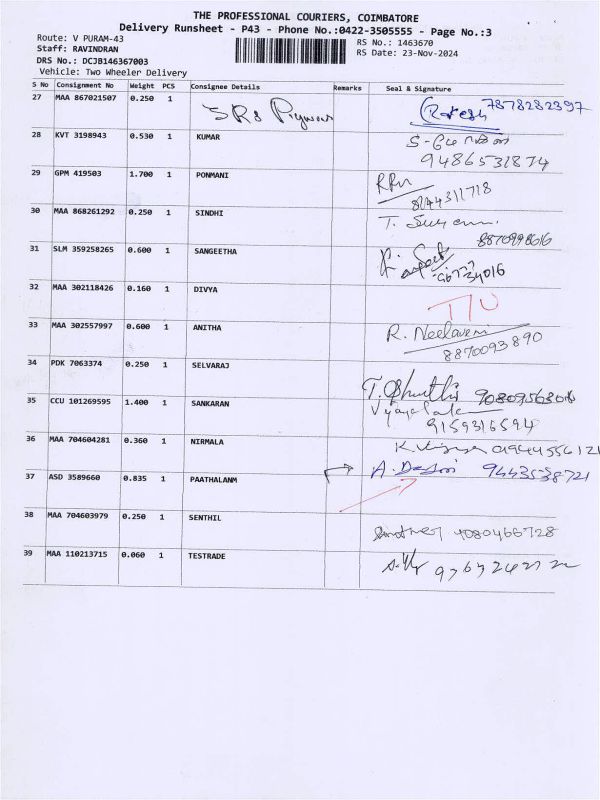 THE PROFESSIONAL COURIERS, COIMBATORE
Delivery Runsheet - P43 - Phone No.:0422-3505555 - Page No.:3
Route: V PURAM-43
RS No.: 1463670
Staff: RAVINDRAN
RS Date: 23-Nov-2024
DRS No.: DCJB146367003
Vehicle: Two Wheeler Delivery
S No Consignment No Weight PCS Consignee Details Remarks Seal & Signature
27 MAA 867021507 0.250 1 SRS Rakesh 7878282397
28 KVT 3198943 0.530 1 KUMAR
9486531874
29 GPM 419503 1.700 1 PONMANI
8144311718
30 MAA 868261292 0.250 1 SINDHI T.
31 SLM 359258265 0.600 1 SANGEETHA
32 MAA 302118426 0.160 1 DIVYA
33 MAA 302557997 0.600 1 ANITHA R. Neelaveni
8870093890
34 PDK 7063374 0.250 1 SELVARAJ
35 CCU 101269595 1.400 1 SANKARAN
9159316594
36 MAA 704604281 0.360 1 NIRMALA
37 ASD 3589660 0.835 1 PAATHALANM A. 9443538721
38 MAA 704603979 0.250 1 SENTHIL
39 MAA 110213715 0.060 1 TESTRADE